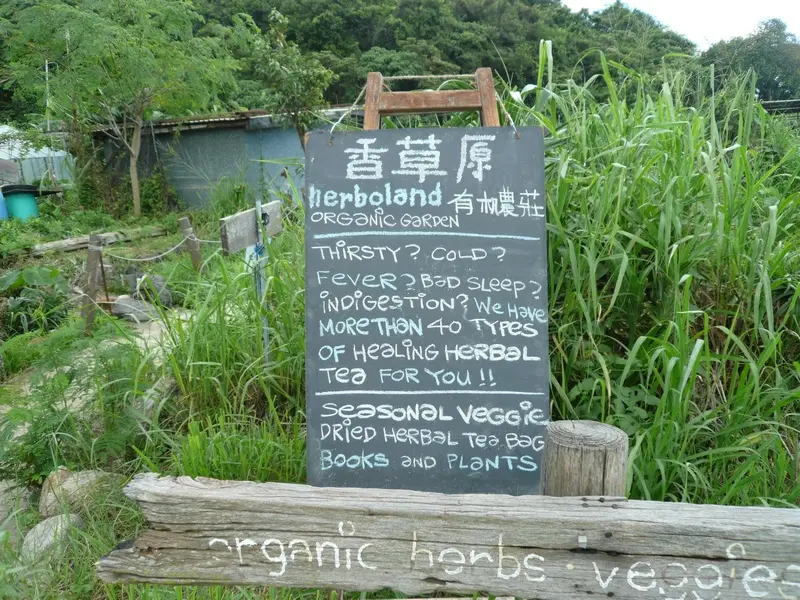 香草原
herboland 有机農莊
ORGANIC GARDEN
THIRSTY? COLD?
FEVER? BAD SLEEP?
INDIGESTION? WE HAVE
MORE THAN 40 TYPES
OF HEALING HERBAL
TEA FOR YOU!!
SEASONAL VEGGIE
DRIED HERBAL TEA BAG
BOOKS AND PLANTS
organic herbs veggies